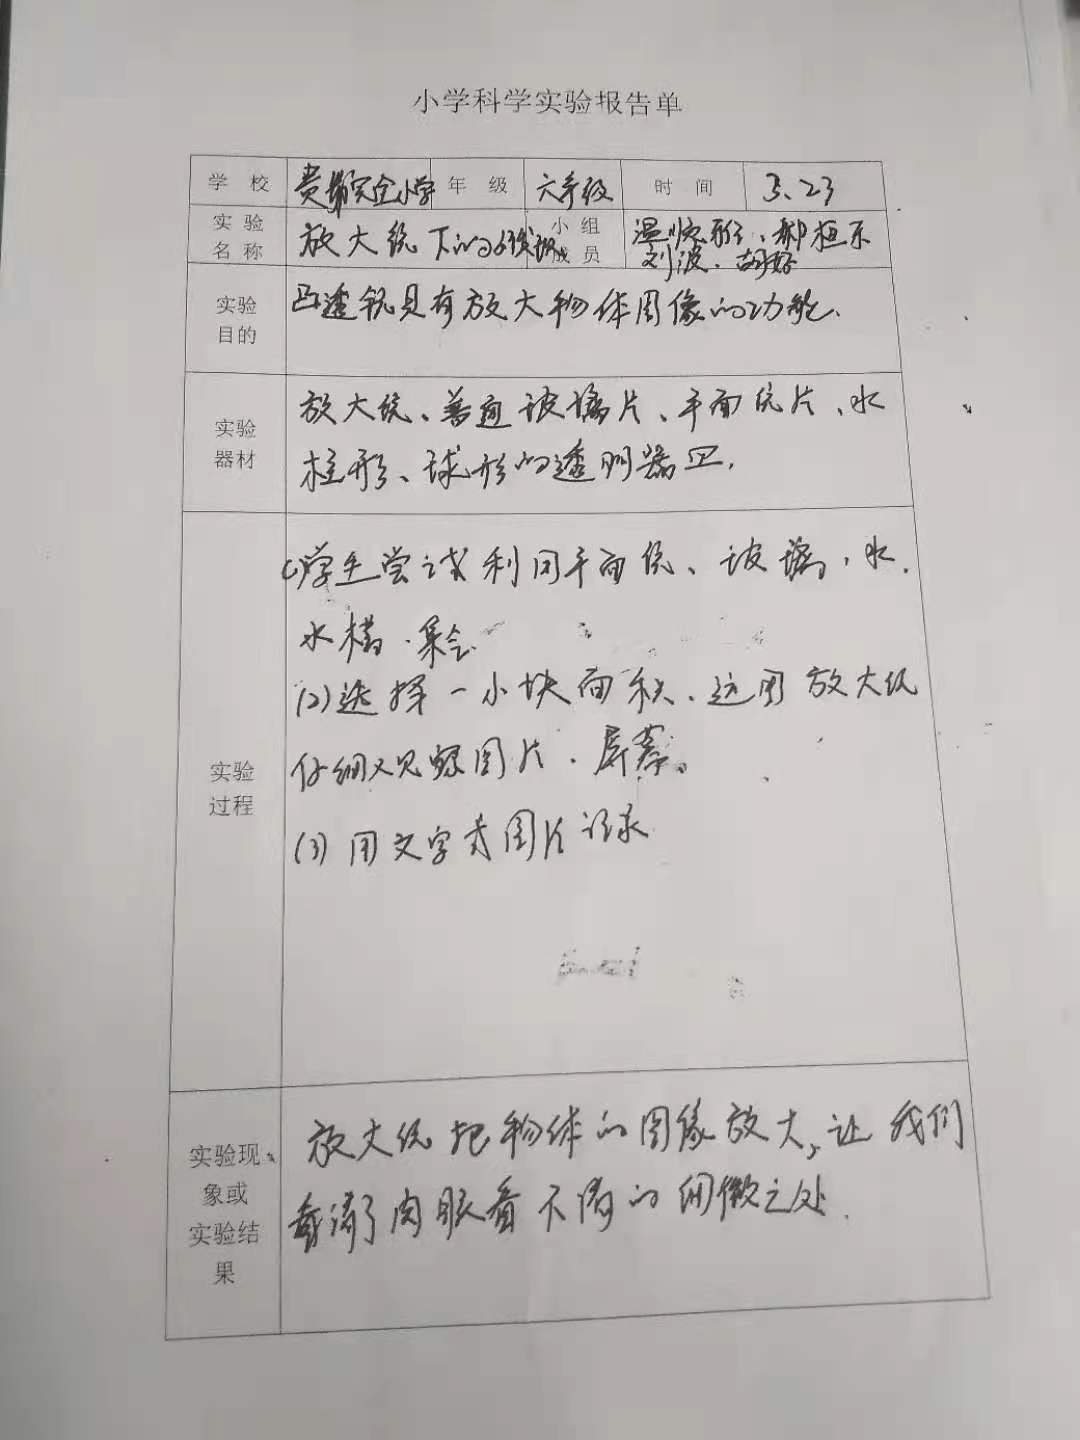 小学科学实验报告单
学校 完全小学 年级 六年级 时间 3、23
实验 小组
名称 放大镜下的 成员
刘波、胡好
实验 凸透镜具有放大物体图像的功能.
目的
放大镜、普通玻璃片、平面镜片、水
实验
器材 柱形、球形的透明器皿.
(1)学生尝试利用平面镜、玻璃、水.
水槽
(2)选择一小块面积、运用放大镜
实验 仔细观察图片、屏幕。
过程
(3)用文字或图片记录
放大镜把物体的图像放大,让我们
实验现
象或 看清了肉眼看不清的细微之处.
实验结
果